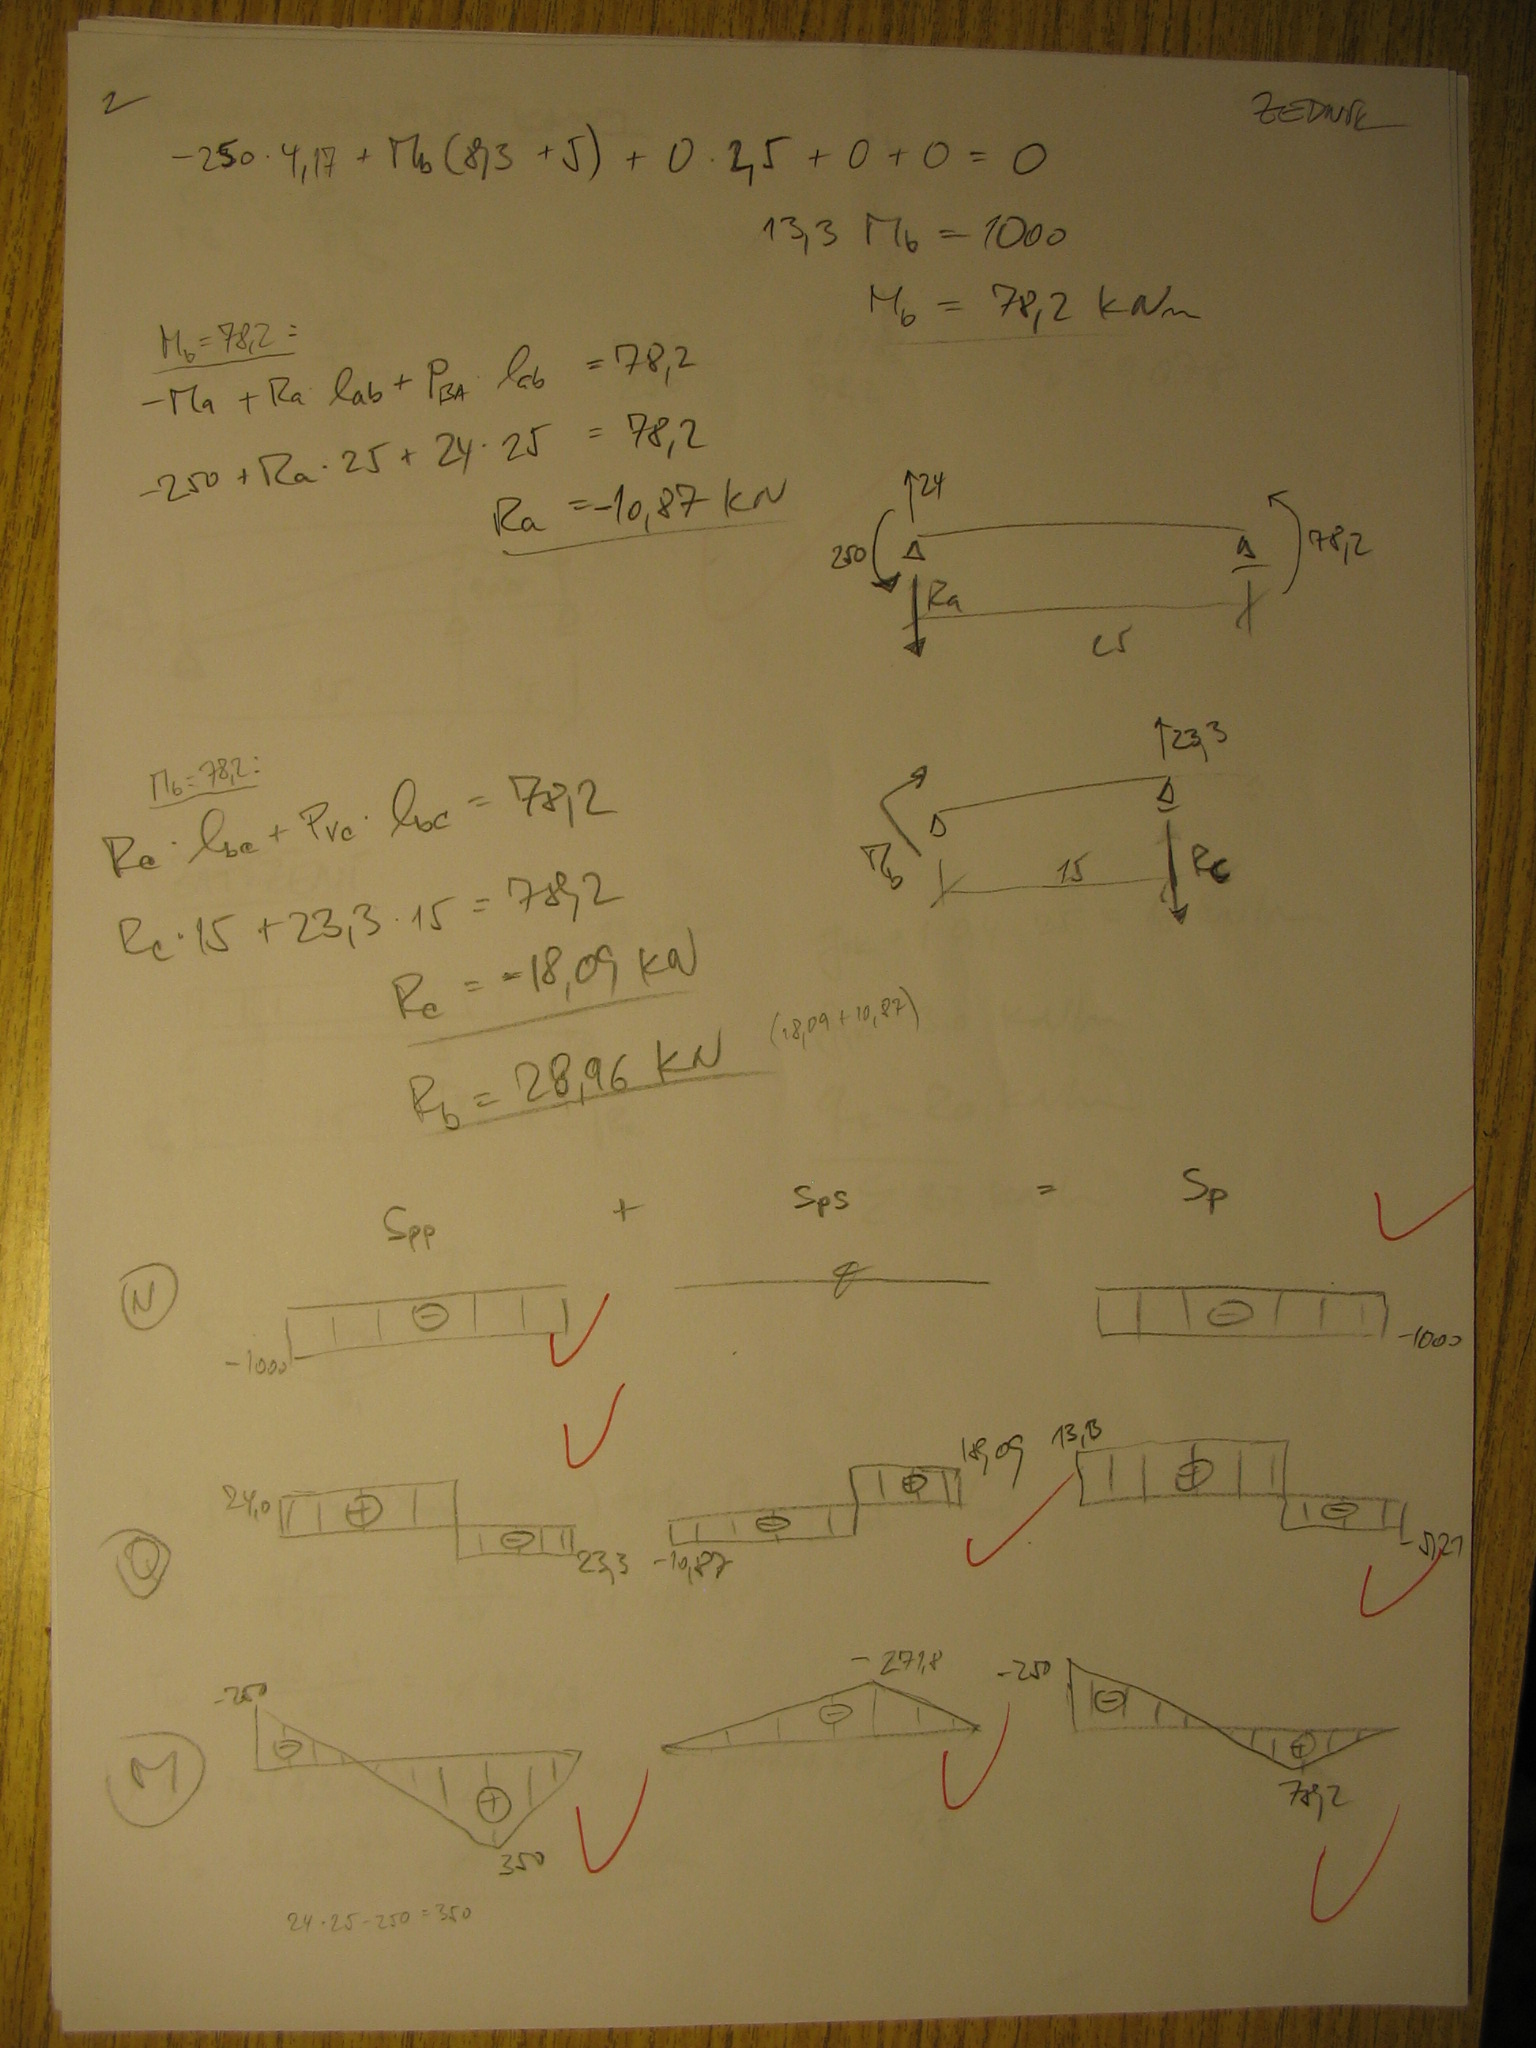 2
ZEDNIK
-250·4,17 + Mb(8,3 + 5) + 0·2,5 + 0 + 0 = 0
13,3 Mb = 1000
Mb = 78,2 kNm
Mb = 78,2 :
-Ma + Ra lab + PBA · lab = 78,2
-250 + Ra · 25 + 24 · 25 = 78,2
Ra = -10,87 kN
↑24
250
78,2
Ra
25
Mb = 78,2 :
Rc · lbc + Pvc · lbc = 78,2
Rc · 15 + 23,3 · 15 = 78,2
Rc = -18,09 kN
Rb = 28,96 kN (18,09 + 10,87)
↑23,3
Mb
15
Rc
Spp + Sps = Sp
N
⊖
⊖
-1000
-1000
18,09
13,13
24,0
⊕
⊖
23,3
Q
⊖
⊕
-10,87
⊕
⊖
-5,21
-271,8
-250
-250
M
⊖
⊕
350
⊖
⊖
⊕
78,2
24·25-250 = 350